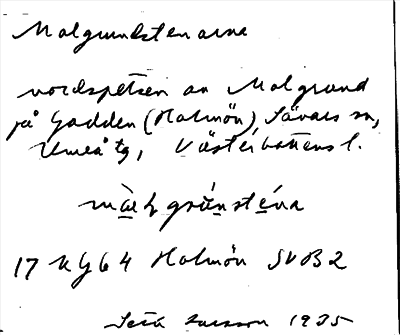 Malgrundstenarna
nordspetsen av Malgrund
på Gadden (Holmön) Sävars sn,
Umeå tg, Västerbottens l.
màɫgrúnsténa
17 Kg 64 Holmön SVB2
Larsson 1935